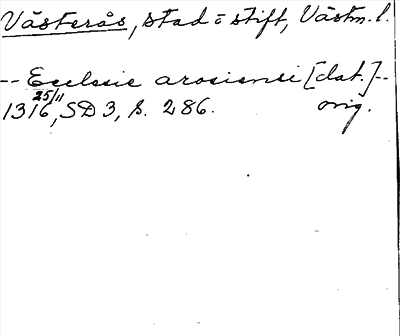 Västerås, stad o stift, Västm. l.
-- Ecclesie arosiensi [dat.] --
25/11
1316, SD 3, s. 286. orig.